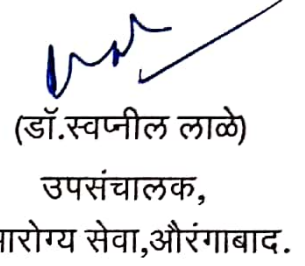 (डॉ.स्वप्नील लाळे)
उपसंचालक,
सेवा,औरंगाबाद.